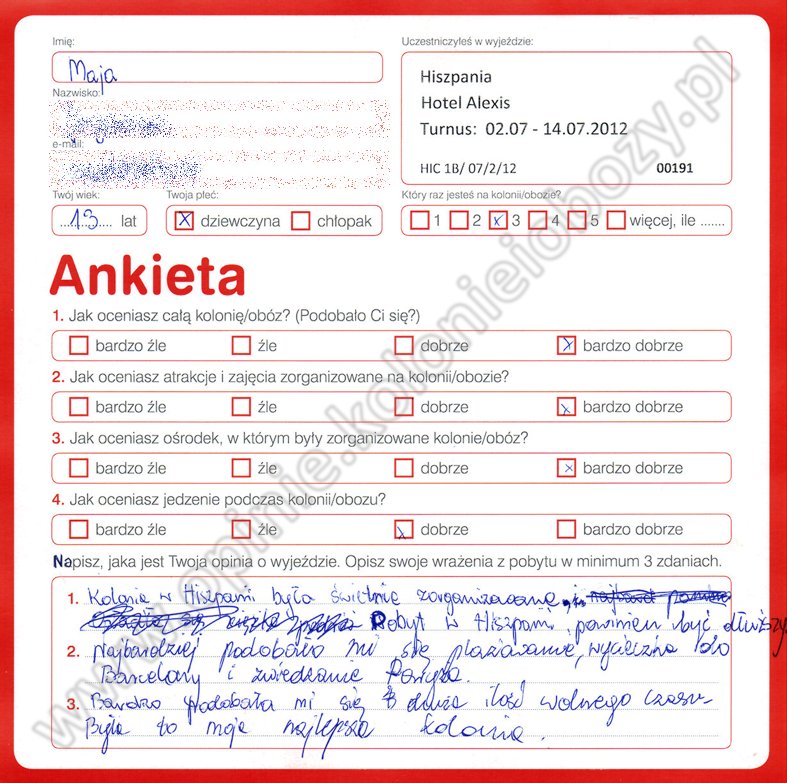 Imię:
Maja
Nazwisko:
e-mail:
Twój wiek:
13 lat
Twoja płeć:
dziewczyna
chłopak
Uczestniczyłeś w wyjeździe:
Hiszpania
Hotel Alexis
Turnus: 02.07 - 14.07.2012
HIC 1B/ 07/2/12 00191
Który raz jesteś na kolonii/obozie?
1 2 3 4 5 więcej, ile .......
Ankieta
1. Jak oceniasz całą kolonię/obóz? (Podobało Ci się?)
bardzo źle źle dobrze bardzo dobrze
2. Jak oceniasz atrakcje i zajęcia zorganizowane na kolonii/obozie?
bardzo źle źle dobrze bardzo dobrze
3. Jak oceniasz ośrodek, w którym były zorganizowane kolonie/obóz?
bardzo źle źle dobrze bardzo dobrze
4. Jak oceniasz jedzenie podczas kolonii/obozu?
bardzo źle źle dobrze bardzo dobrze
Napisz, jaka jest Twoja opinia o wyjeździe. Opisz swoje wrażenia z pobytu w minimum 3 zdaniach.
1. Kolonia w Hiszpani była świetnie zorganizowana,
Pobyt w Hiszpani powinien być dłuższy.
2. Najbardziej podobało mi się plażowanie, wycieczka do
Barcelony i zwiedzanie Paryża.
3. Bardzo podobała mi się duża ilość wolnego czasu.
Była to moja najlepsza kolonia.
www.opinie.kolonieiobozy.pl